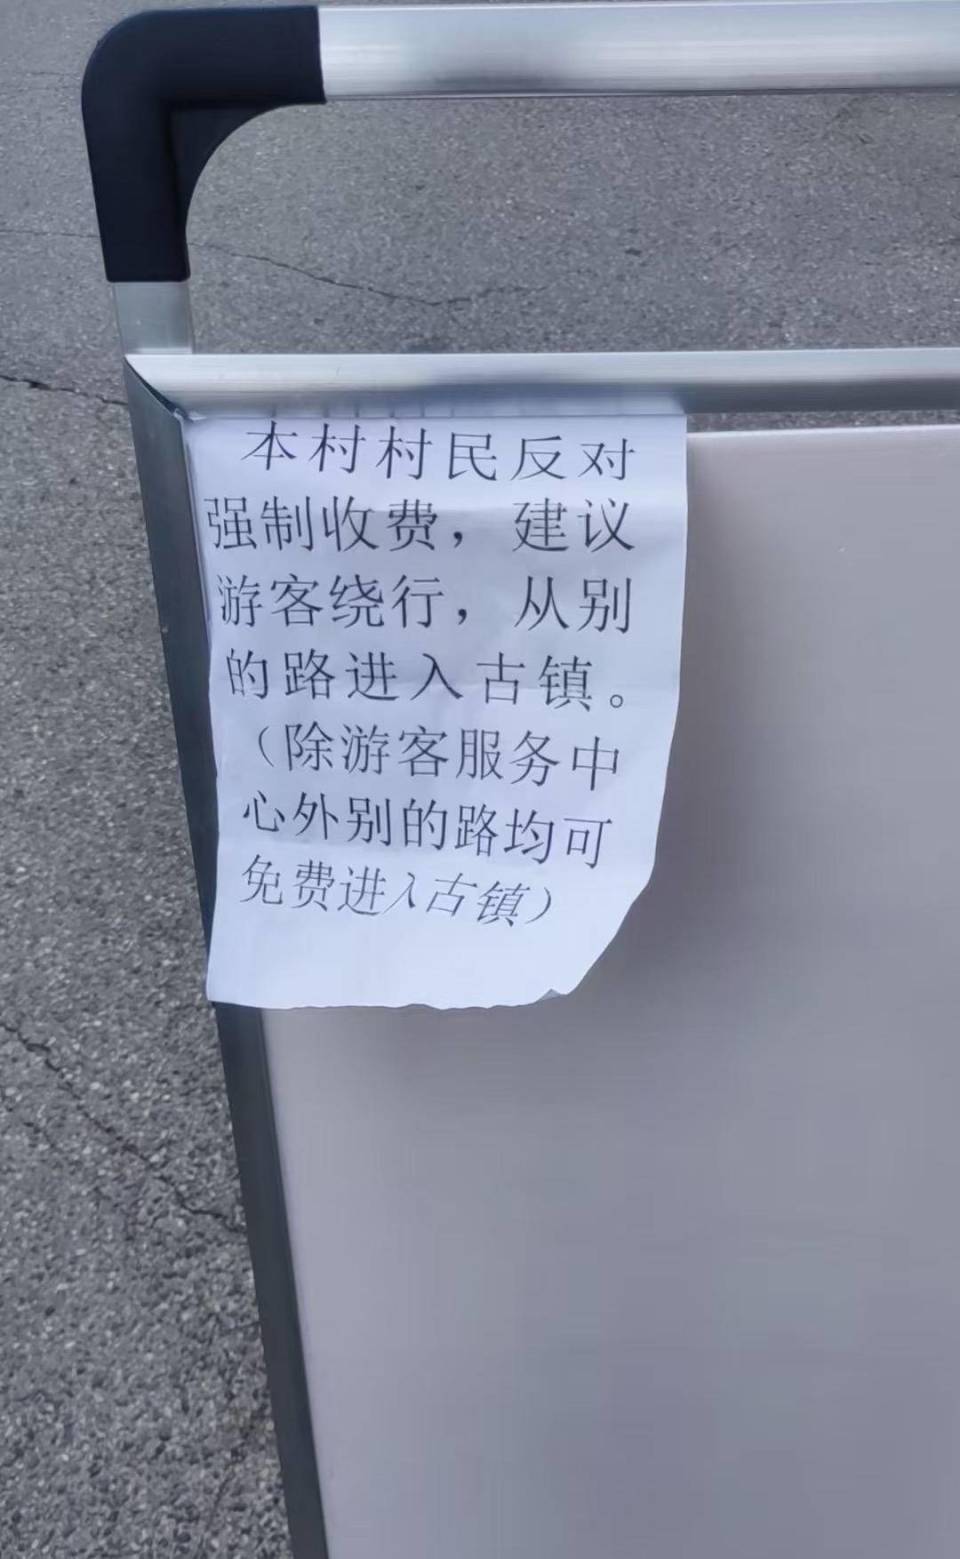 本村村民反对
强制收费，建议
游客绕行，从别
的路进入古镇。
（除游客服务中
心外别的路均可
免费进入古镇）